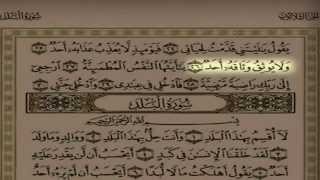 الجزء الثلاثون
سورة البلد
يَقُولُ يَٰلَيْتَنِي قَدَّمْتُ لِحَيَاتِي ٢٤ فَيَوْمَئِذٍ لَّا يُعَذِّبُ عَذَابَهُۥٓ أَحَدٌ ٢٥
وَلَا يُوثِقُ وَثَاقَهُۥٓ أَحَدٌ ٢٦ يَٰٓأَيَّتُهَا ٱلنَّفْسُ ٱلْمُطْمَئِنَّةُ ٢٧ ٱرْجِعِيٓ
إِلَىٰ رَبِّكِ رَاضِيَةً مَّرْضِيَّةً ٢٨ فَٱدْخُلِي فِي عِبَٰدِي ٢٩ وَٱدْخُلِي جَنَّتِي ٣٠
سُورَةُ البَلَدِ
بِسْمِ ٱللَّهِ ٱلرَّحْمَٰنِ ٱلرَّحِيمِ
لَآ أُقْسِمُ بِهَٰذَا ٱلْبَلَدِ ١ وَأَنتَ حِلٌّۢ بِهَٰذَا ٱلْبَلَدِ ٢ وَوَالِدٍ وَمَا وَلَدَ
٣ لَقَدْ خَلَقْنَا ٱلْإِنسَٰنَ فِي كَبَدٍ ٤ أَيَحْسَبُ أَن لَّن يَقْدِرَ عَلَيْهِ
أَحَدٌ ٥ يَقُولُ أَهْلَكْتُ مَالًا لُّبَدًا ٦ أَيَحْسَبُ أَن لَّمْ يَرَهُۥٓ أَحَدٌ